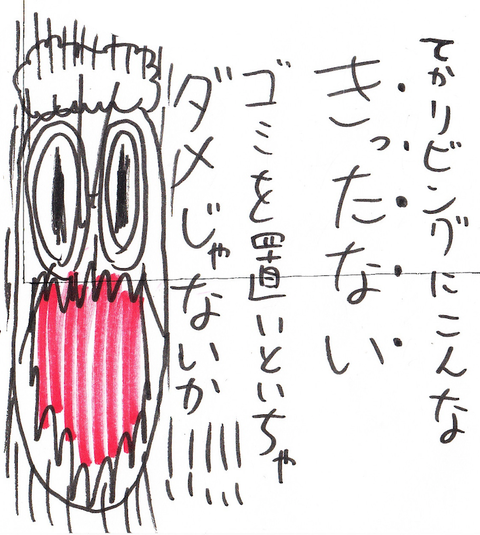 てかリビングにこんな
きったない
ゴミを置いといちゃ
ダメじゃないか!!!!!